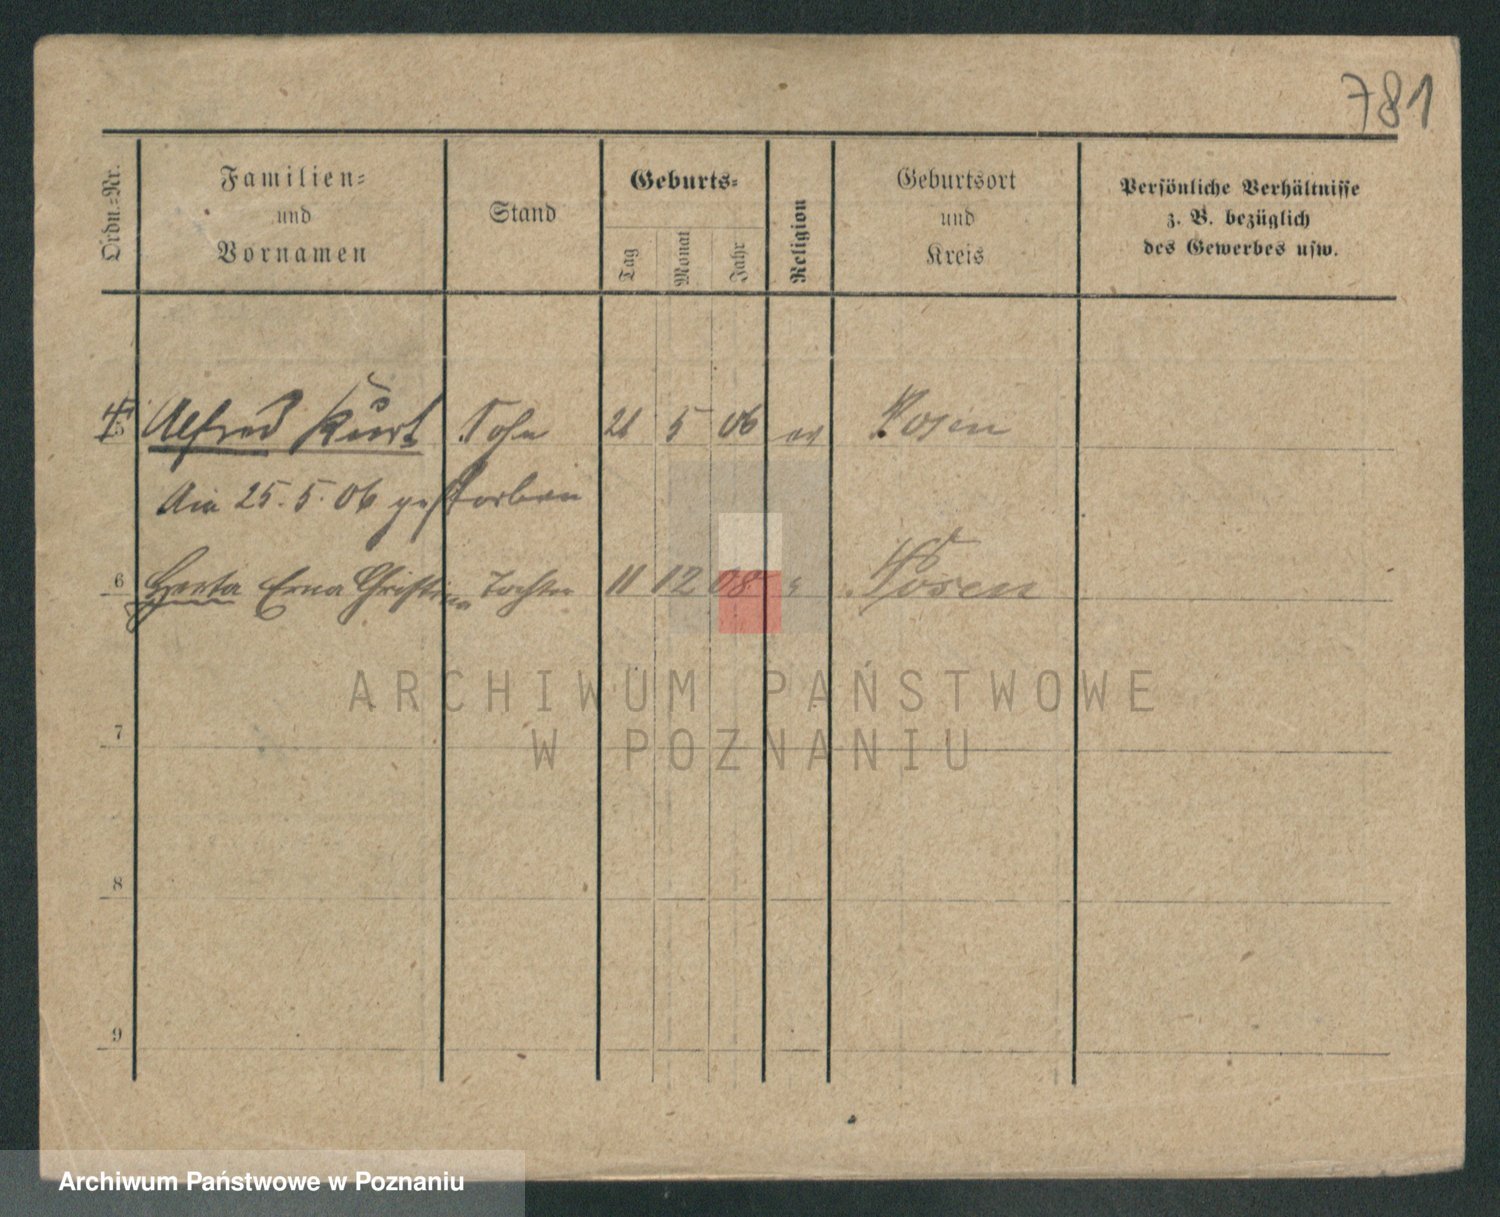 781
Ordn.-Nr.
Familien-
und
Vornamen
Stand
Geburts-
Tag
Monat
Jahr
Religion
Geburtsort
und
Kreis
Persönliche Verhältnisse
z. B. bezüglich
des Gewerbes usw.
5 Alfred Kurt Sohn 21 5 06 ev Posen
Am 25. 5. 06 gestorben
6 Herta Erna Christine Tochter 11 12 08 " Posen
7
8
9
ARCHIWUM PAŃSTWOWE
W POZNANIU
Archiwum Państwowe w Poznaniu